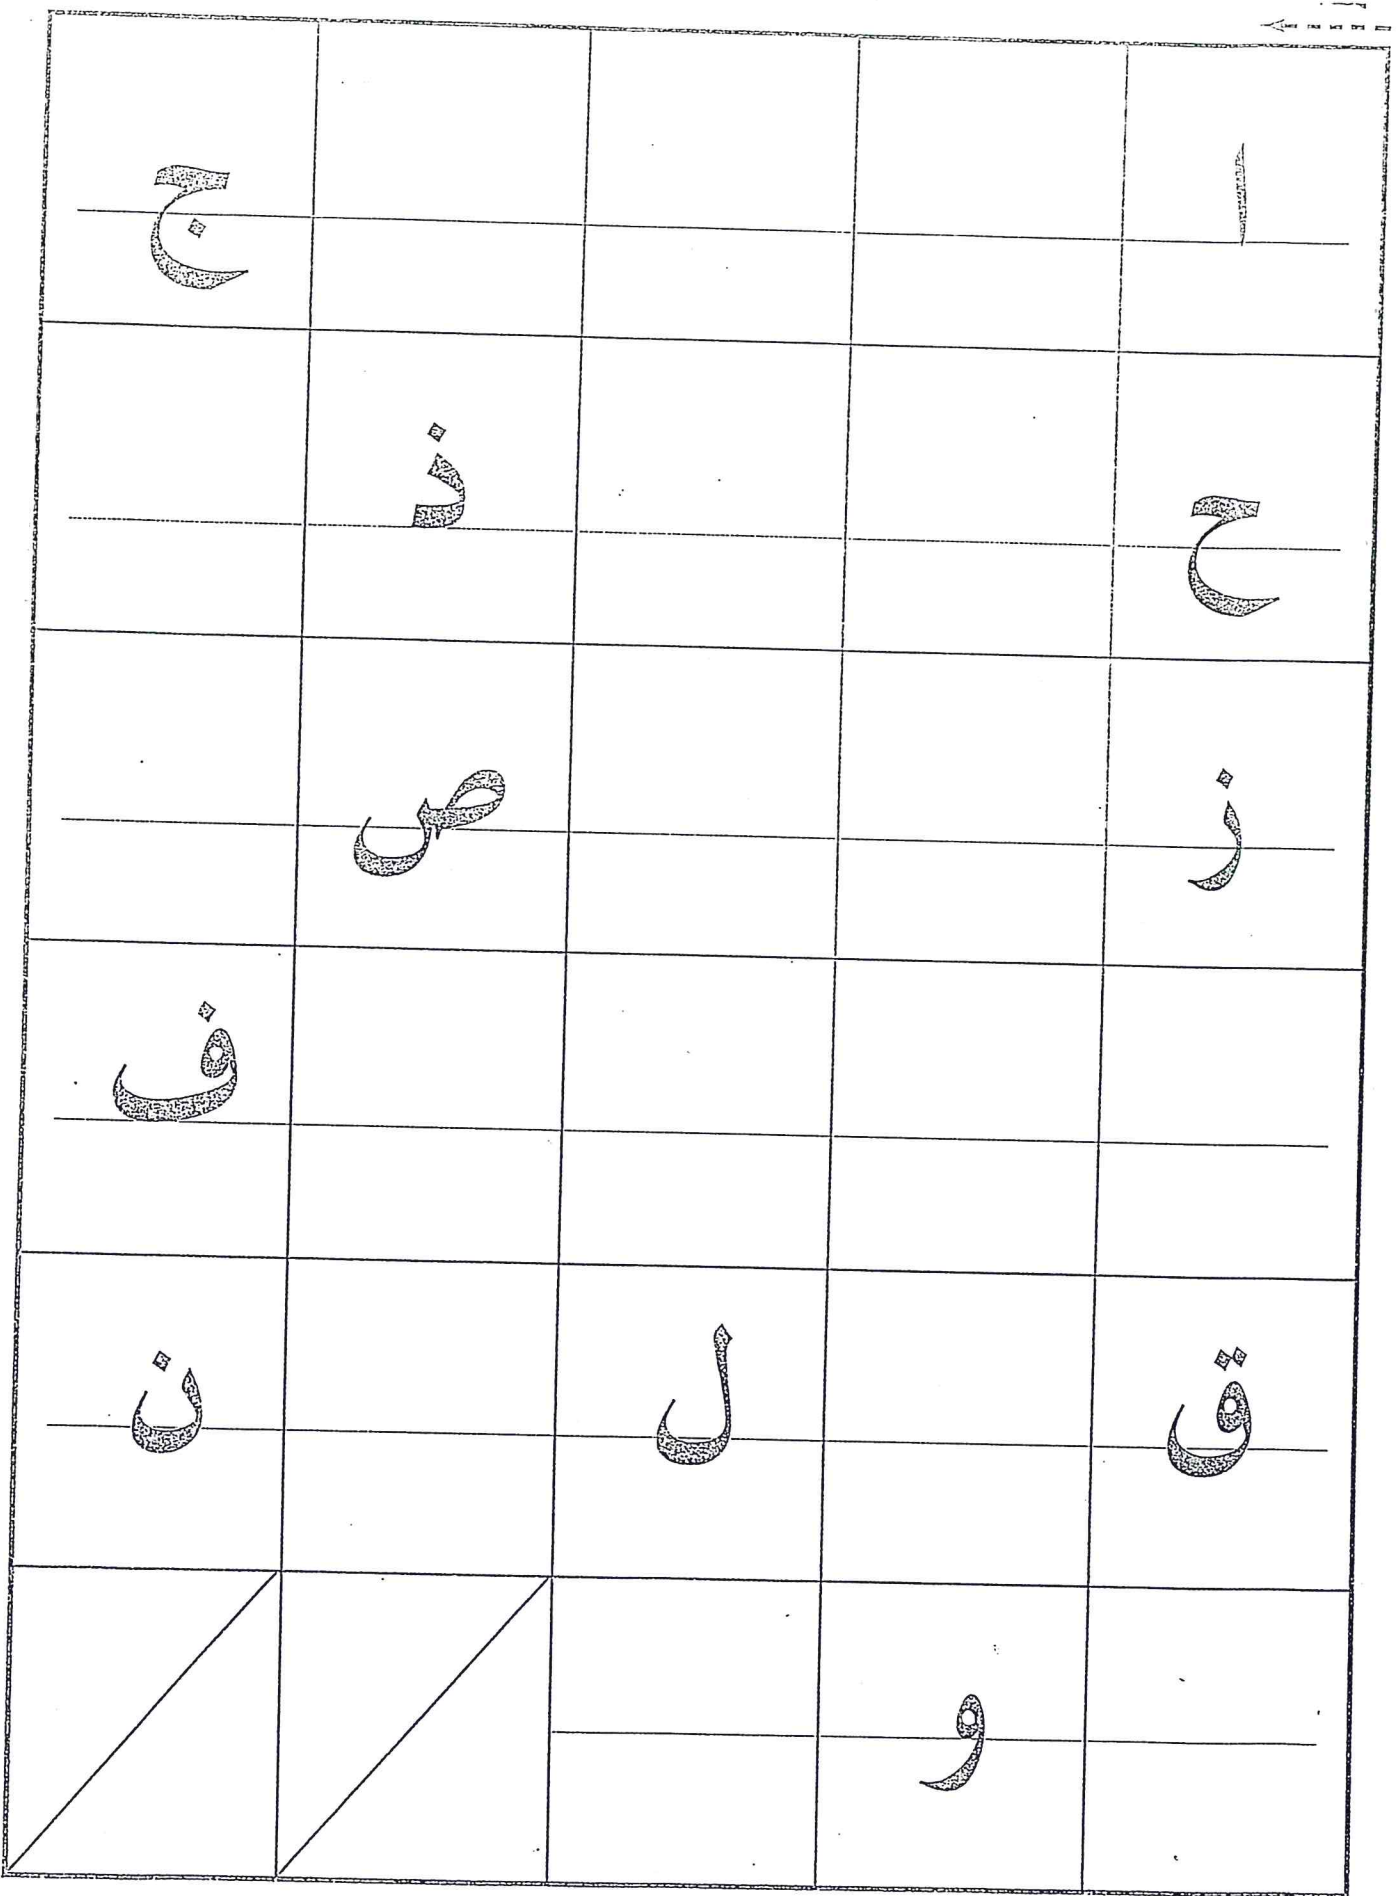 ا ج
ح ذ
ز ص
ف
ق ل ن
و